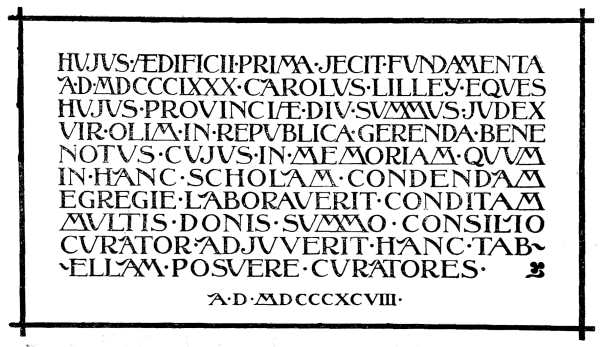 HUJUS·ÆDIFICII·PRIMA·JECIT·FUNDAMENTA
A·D·MDCCCIXXX·CAROLUS·LILLEY·EQUES
HUJUS·PROVINCIÆ·DIU·SUMMUS·JUDEX
VIR·OLIM·IN·REPUBLICA·GERENDA·BENE
NOTUS·CUJUS·IN·MEMORIAM·QUUM
IN·HANC·SCHOLAM·CONDENDAM
EGREGIE·LABORAVERIT·CONDITAM
MULTIS·DONIS·SUMMO·CONSILIO
CURATOR·ADJUVERIT·HANC·TAB~
~ELLAM·POSUERE·CURATORES·
A·D·MDCCCXCVIII·